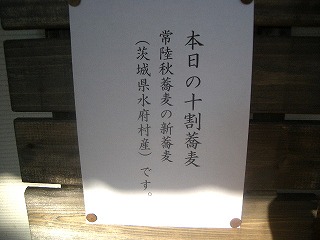 本日の十割蕎麦
常陸秋蕎麦の新蕎麦
（茨城県水府村産）です。